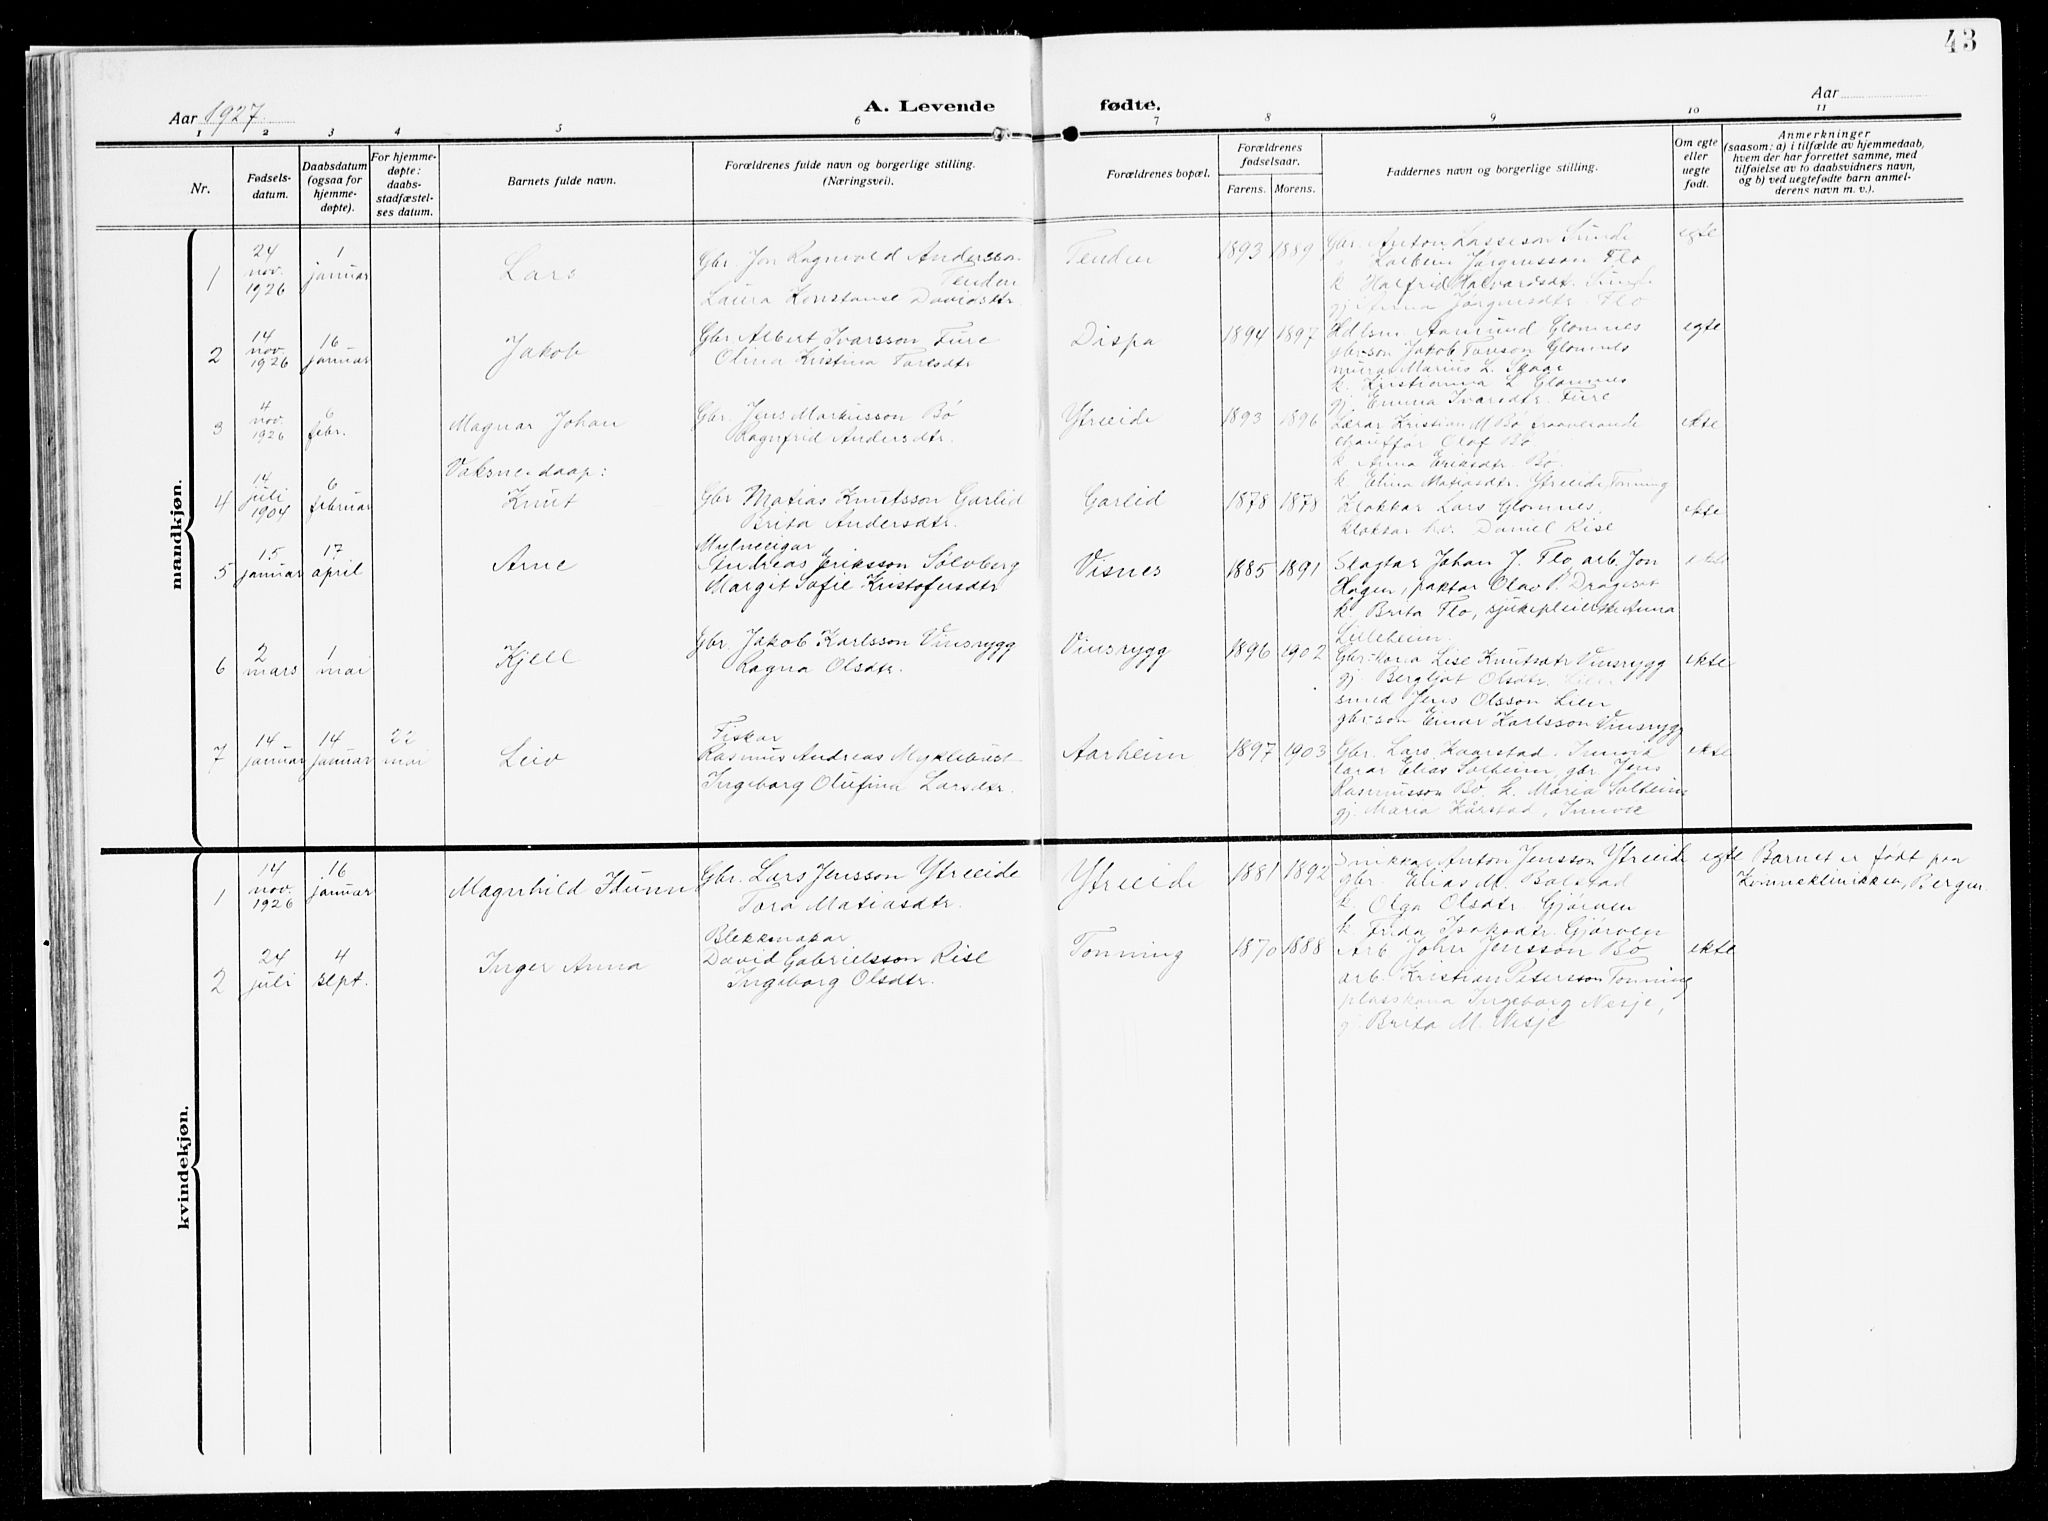 43
Aar 1927
A. Levende
fødte.
Aar
1 2 3 4 5 6 7 8 9 10 11
Nr.
Fødsels-
datum.
Daabsdatum
(ogsaa for
hjemme-
døpte).
For hjemme-
døpte:
daabs-
stadfæstel-
ses datum.
Barnets fulde navn.
Forældrenes fulde navn og borgerlige stilling.
(Næringsvei).
Forældrenes bopæl.
Forældrenes
fødselsaar.
Farens. Morens.
Faddernes navn og borgerlige stilling.
Om egte
eller
uegte
født.
Anmerkninger
(saasom: a) i tilfælde av hjemmedaab,
hvem der har forrettet samme, med
tilføielse av to daabsvidners navn,
og b) ved uegtefødte barn anmel-
derens navn m. v.).
mandkjøn.
1
24
nov.
1926
1
januar
Lars
Gbr. Jon Ragnvald Andersson
Tenden
Laura Konstanse Davidsdtr.
Tenden
1893 1889
Gbr. Anton Lassesson Sunde
Kolbein Jörgensson Flo
k. Halfrid Halvardsdt. Sunde
gj. Anna Jørgensdtr. Flo
egte
2
14
nov.
1926
16
januar
Jakob
Gbr Albert Ivarsson Fure
Olina Kristina Taresdtr
Dispa
1894 1897
Hdlsm. Aamund Glomnes
gbr-son Jakob Tareson Glomnes
murar Marius L. Skaar
k. Kristianna L Glomnes
gj. Emma Ivarsdtr. Fure
egte
3
4
nov.
1926
6
febr.
Magnar Johan
Gbr. Jens Markusson Bö
Ragnfrid Andersdtr.
Ytreeide
1893 1896
Lærar Kristian M Bö fraaverande
chauffør Olaf Bö
k. Anna Eriksdtr. Bö.
k. Elina Matiasdtr. Ytreeide Tonning
ekte
4
14
juli
1904
6
februar
Vaksne-daap:
Knut
Gbr Matias Knutsson Garlid
Brita Andersdtr.
Garlid
1878 1878
Klokkar Lars Glomnes.
klokkar h.v. Daniel Rise
ekte
5
15
januar
17
april
Arne
Mylneeigar
Andreas Eriksson Sølvberg
Margit Sofie Kristofersdtr
Visnes
1885 1891
Slagtar Johan J. Flo arb. Jon
Hagen, paktar Olav P. Drageset
k Brita Flo, sjukepleierske Anna
Lilleheim.
ekte
6
2
mars
1
mai
Kjell
Gbr Jakob Karlsson Vinsrygg
Ragna Olsdtr.
Vinsrygg
1896 1902
Gbr-kona Lise Knutsdtr Vinsrygg
gj. Bergljot Olsdtr. Lien
smed Jens Olsson Lien
gbr-son Einar Karlsson Vinsrygg
ekte
7
14
januar
14
januar
22
mai
Leiv
Fiskar
Rasmus Andreas Myklebust
Ingeborg Olufina Larsdtr.
Aarheim
1897 1903
Gbr. Lars Kaarstad. Innvik
lærar Elias Solheim, gbr Jens
Rasmusson Bö. k. Maria Solheim
gj. Maria Kårstad, Innvik
ekte
kvindekjøn.
1
14
nov.
1926
16
januar
Magnhild Idunn
Gbr. Lars Jensson Ytreeide
Tora Matiasdtr.
Ytreeide
1881 1892
Snikkar Anton Jensson Ytreeide
gbr. Elias M. Bolstad
k. Olga Olsdtr Gjørven
k Frida Isaksdtr. Gjørven
egte
Barnet er født paa
Kvinneklinikken, Bergen.
2
24
juli
4
sept.
Inger Anna
Blekkmakar
David Gabrielsson Rise
Ingeborg Olsdtr.
Tonning
1870 1888
Arb John Jensson Bö
arb. Kristian Petersson Tonning
plasskona Ingeborg Nesje,
gj. Brita M. Nesje
ekte